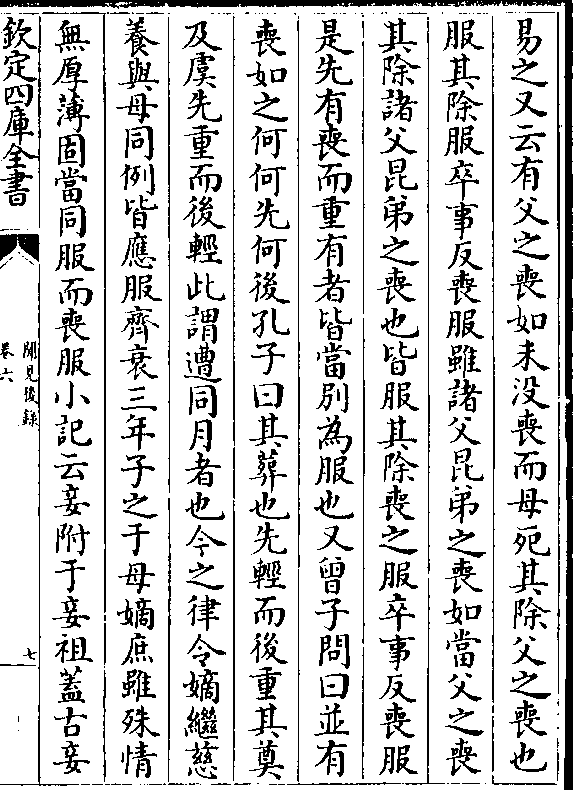 易之又云有父之喪如未没喪而母死其除父之喪也
服其除服卒事反喪服雖諸父昆弟之喪如當父之喪
其除諸父昆弟之喪也皆服其除喪之服卒事反喪服
是先有喪而重有者皆當別為服也又曾子問曰並有
喪如之何何先何後孔子曰其葬也先輕而後重其奠
及虞先重而後輕此謂遭同月者也今之律令嫡繼慈
養與母同例皆應服齊衰三年子之于母嫡庶雖殊情
無厚薄固當同服而喪服小記云妾附于妾祖蓋古妾
欽定四庫全書
聞見後録
卷六
七